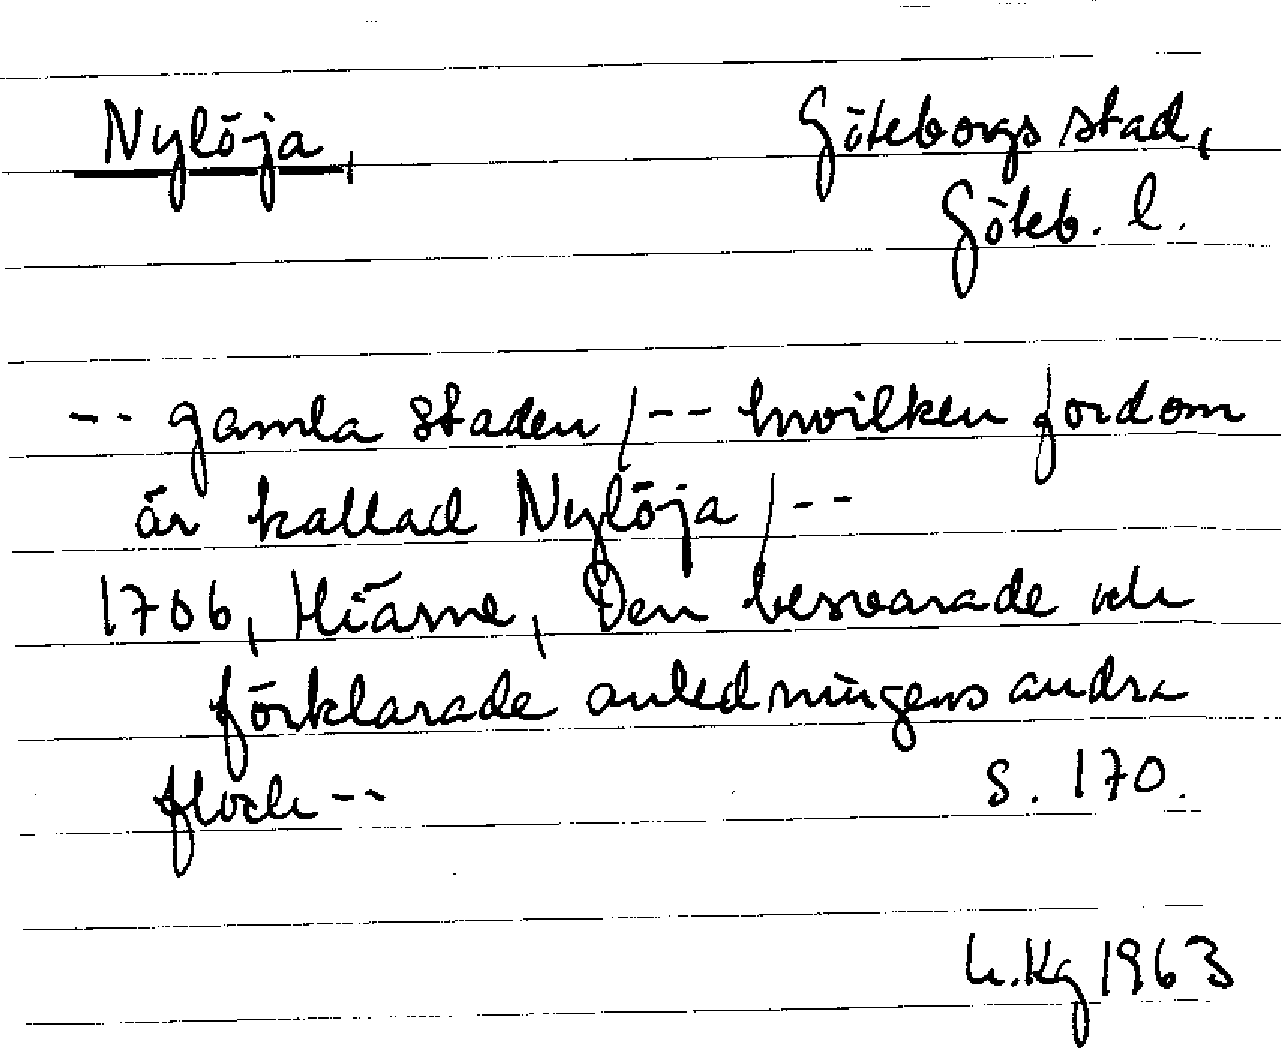 Nylöja, Göteborgs stad,
Göteb. l.
-- gamla staden /-- hwilken fordom
är kallad Nylöja /--
1706, Hiärne, Den besvarade och
förklarade anledningens andra
flock -- s. 170.
1963